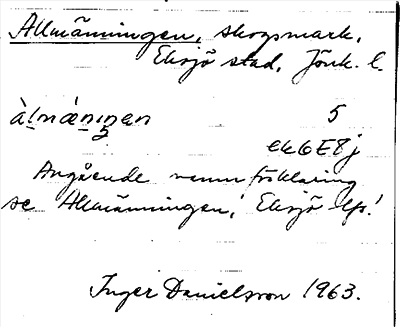 Allmänningen, skogsmark,
Eksjö stad, Jönk. l.
àlmǽnıŋen 5
ek6E8j
Angående namnförklaring
se Allmänningen, Eksjö lfs!
Inger Danielsson 1963.